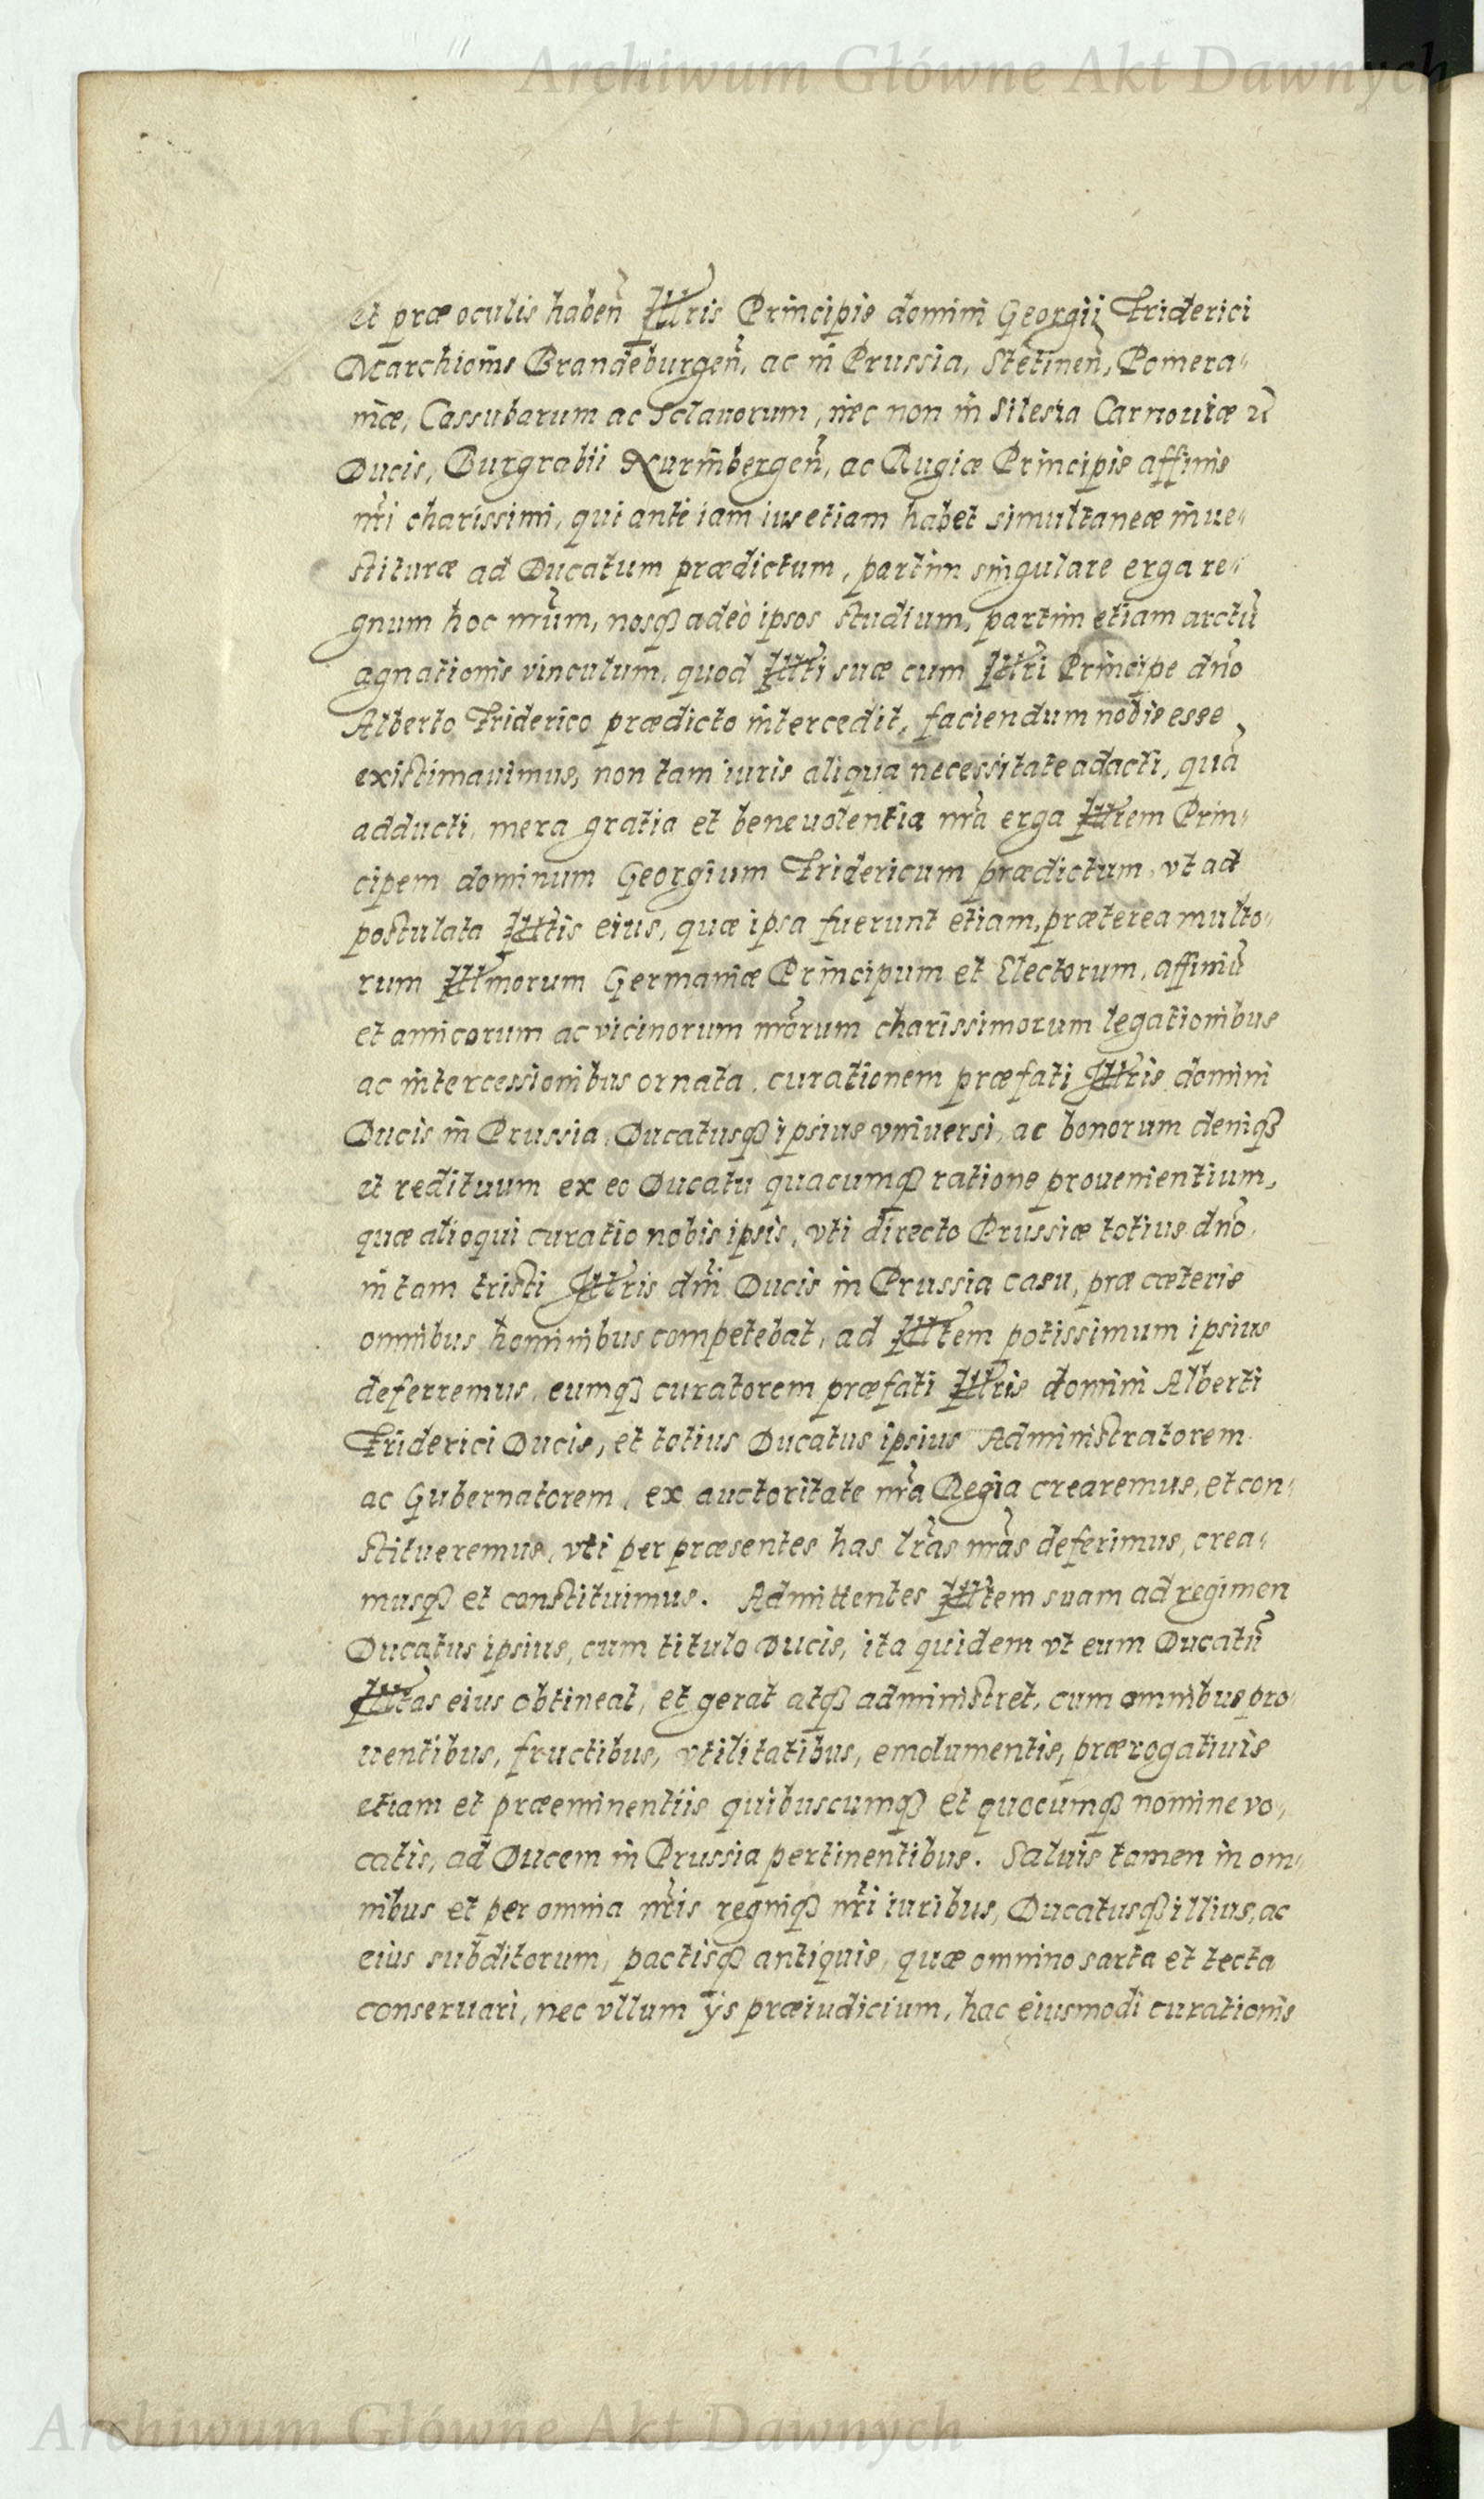 Archiwum Główne Akt Dawnych
et præ oculis haben̄ Ill̃ris Principis domini Georgii Friderici
Marchionis Brandeburgen̄, ac in Prussia, Stetinen̄, Pomera-
niæ, Cassubarum ac Sclauorum, nec non in Silesia Carnouiæ &c
Ducis, Burgrabii Nurinbergen̄, ac Rugiæ Principis affinis
nr̃i charissimi, qui ante iam ius etiam habet simultaneæ inue-
stituræ ad Ducatum prædictum, partim singulare erga re-
gnum hoc nr̃um, nosq₃ adeò ipsos studium, partim etiam arctū
agnationis vinculum, quod Ill̃ti suæ cum Ill̃ri Principe dn̄o
Alberto Friderico prædicto intercedit, faciendum nobis esse
existimauimus, non tam iuris aliqua necessitate adacti, quā
adducti, mera gratia et beneuolentia nr̃a erga Ill̃rem Prin-
cipem dominum Georgium Fridericum prædictum, vt ad
postulata Ill̃tis eius, quæ ipsa fuerunt etiam, præterea multo-
rum Ill̃morum Germaniæ Principum et Electorum, affiniū
et amicorum ac vicinorum nr̃orum charissimorum legationibus
ac intercessionibus ornata, curationem præfati Ill̃ris domini
Ducis in Prussia, Ducatusq₃ ipsius vniuersi, ac bonorum deniq₃
et redituum ex eo Ducatu quacumq₃ ratione prouenientium,
quæ alioqui curatio nobis ipsis, vti directo Prussiæ totius dn̄o,
in tam tristi Ill̃ris dn̄i Ducis in Prussia casu, præ cæteris
omnibus hominibus competebat, ad Ill̃tem potissimum ipsius
deferremus, eumq₃ curatorem præfati Ill̃ris domini Alberti
Friderici Ducis, et totius Ducatus ipsius Administratorem
ac Gubernatorem, ex auctoritate nr̃a Regia crearemus, et con-
stitueremus, vti per præsentes has lr̃as nr̃as deferimus, crea-
musq₃ et constituimus. Admittentes Ill̃tem suam ad regimen
Ducatus ipsius, cum titulo Ducis, ita quidem vt eum Ducatū
Ill̃tas eius obtineat, et gerat atq₃ administret, cum omnibus pro-
uentibus, fructibus, vtilitatibus, emolumentis, prærogatiuis
etiam et præeminentiis quibuscumq₃ et quocumq₃ nomine vo-
catis, ad Ducem in Prussia pertinentibus. Saluis tamen in om-
nibus et per omnia nr̃is regniq₃ nr̃i iuribus, Ducatusq₃ illius, ac
eius subditorum, pactisq₃ antiquis, quæ omnino sarta et tecta
conseruari, nec vllum ijs præiudicium, hac eiusmodi curationis
Archiwum Główne Akt Dawnych